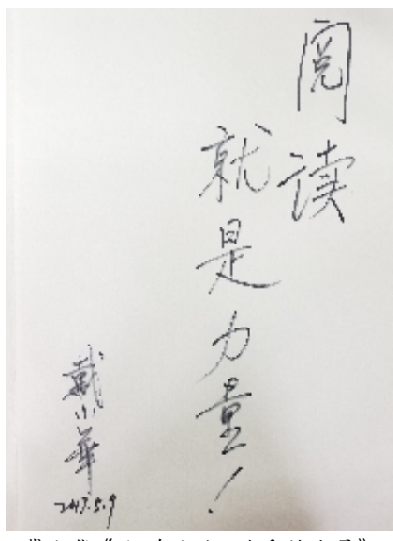 阅读
就是力量！
戴小华
2017.5.9